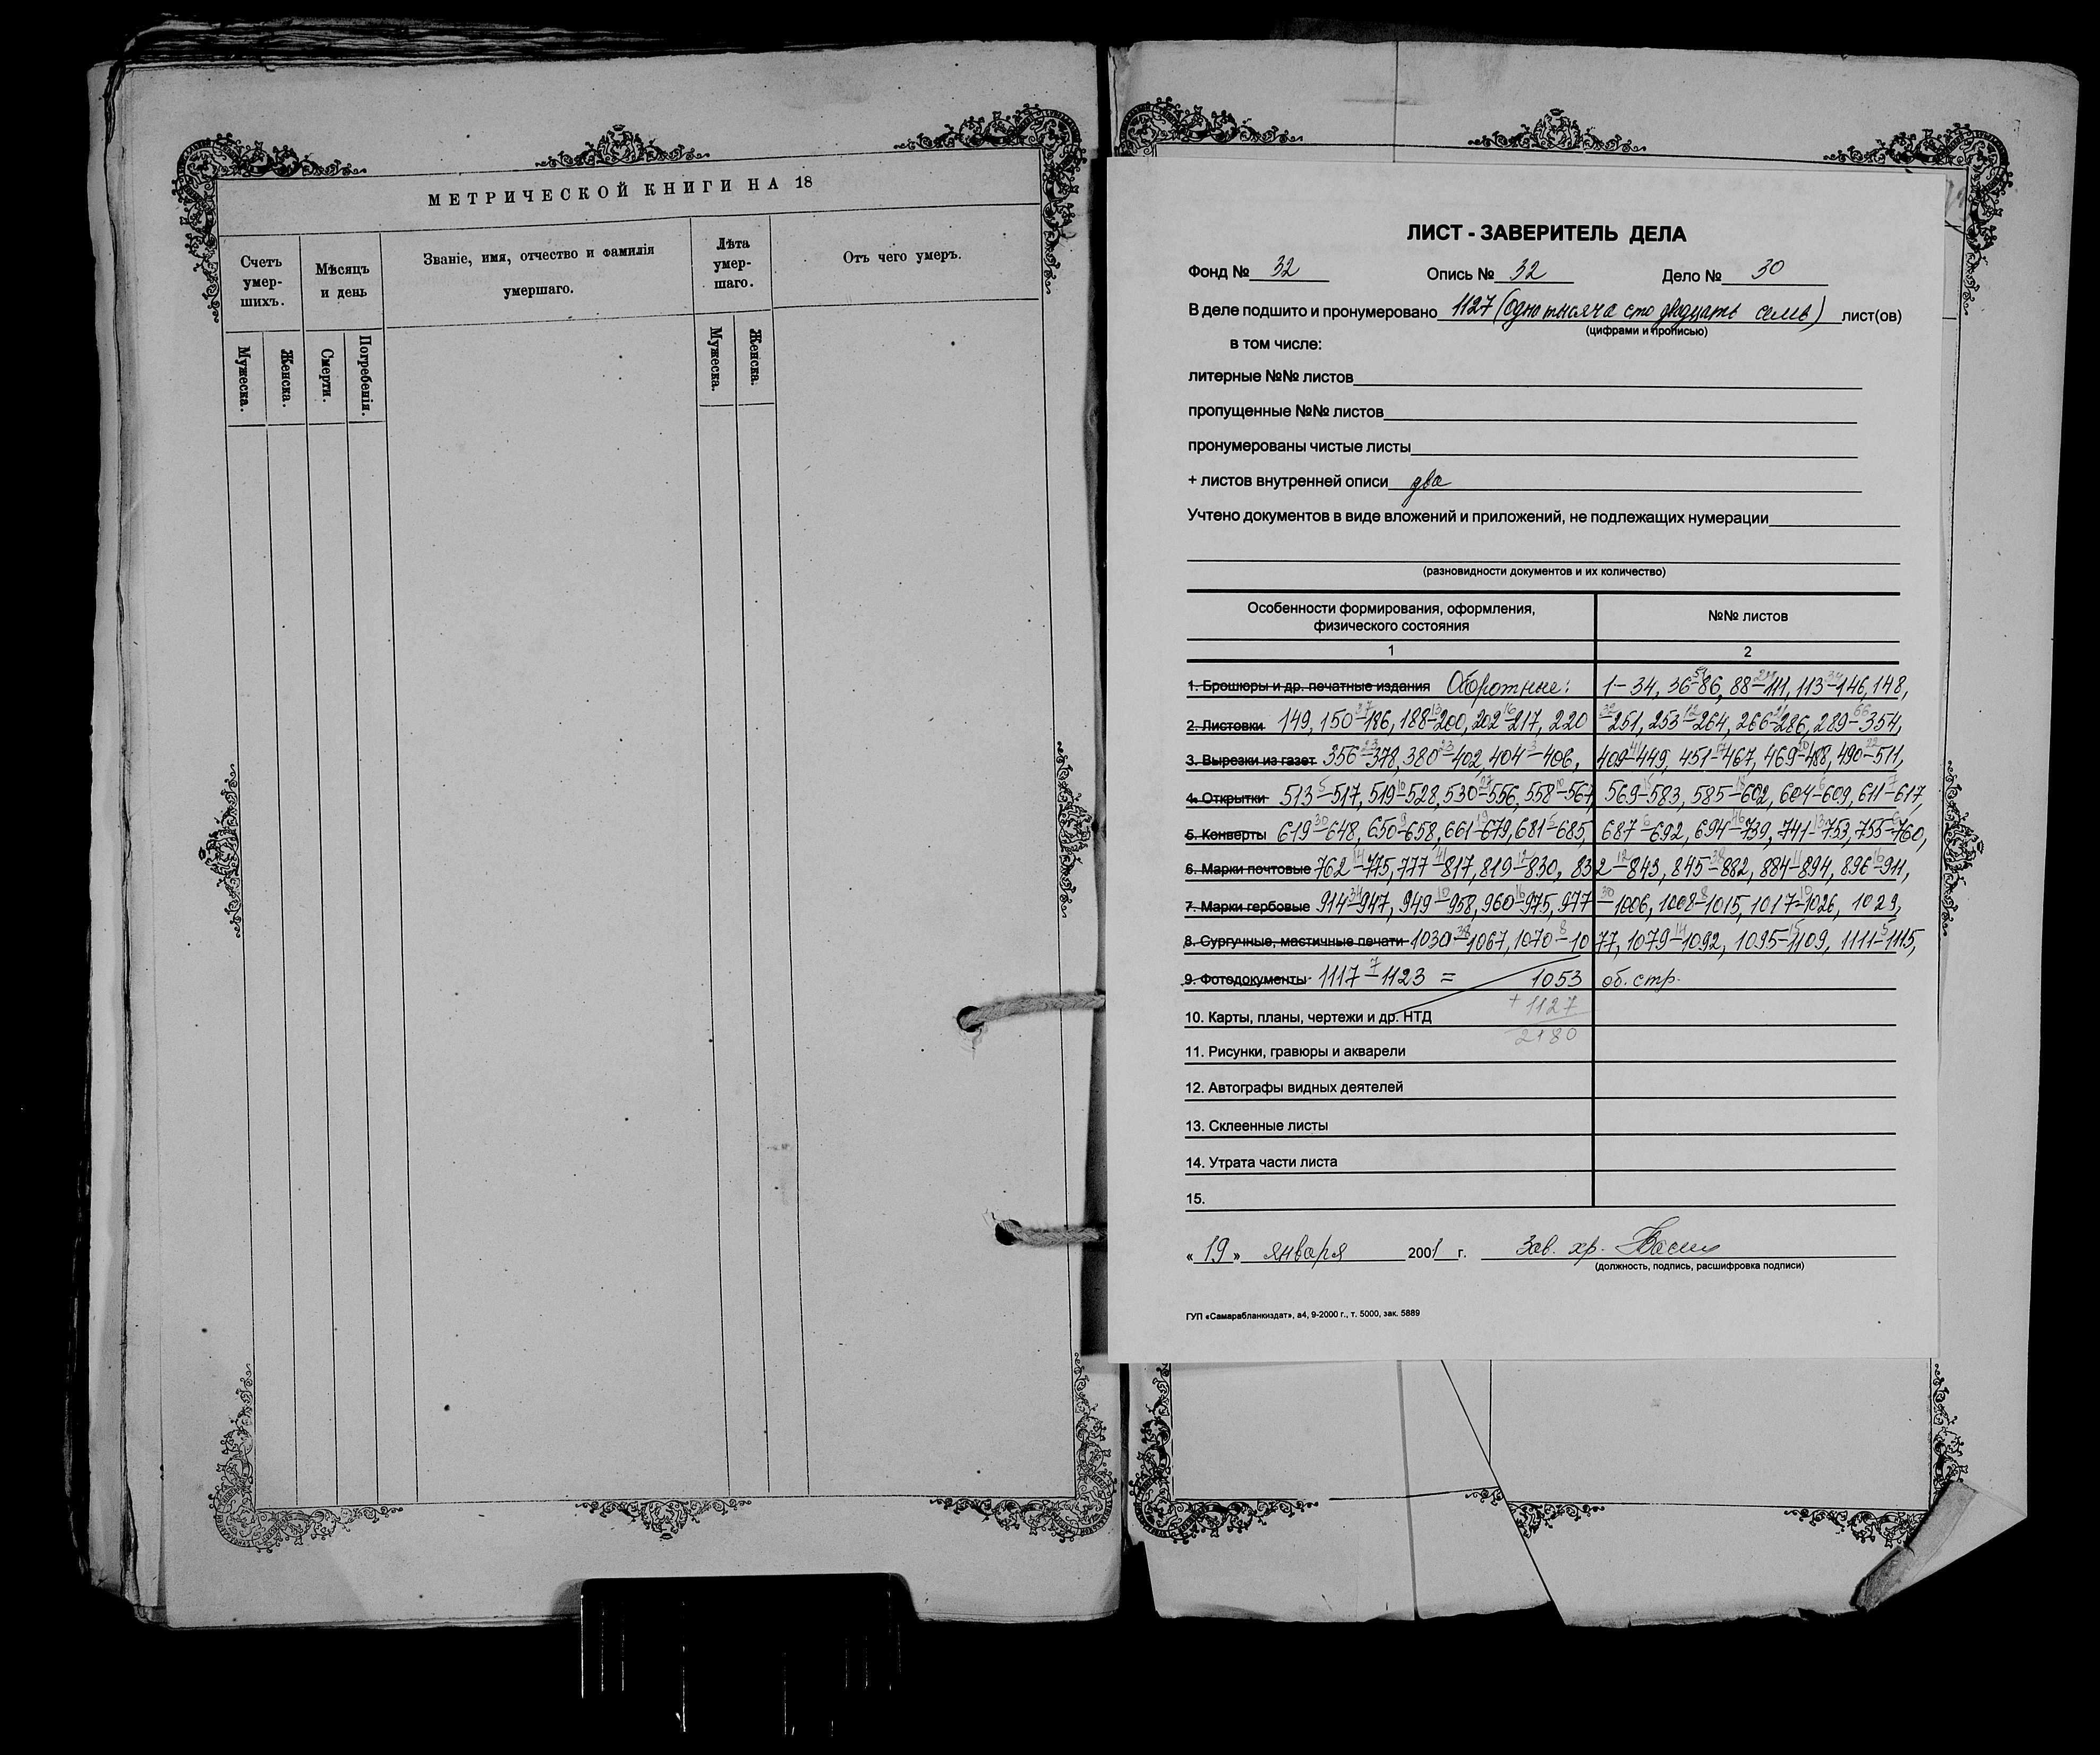 МЕТРИЧЕСКОЙ КНИГИ НА 18
Счетъ умер-шихъ.
Мѣсяцъ и день
Званіе, имя, отчество и фамилія умершаго.
Лѣта умер-шаго.
Отъ чего умеръ.
Мужеска.
Женска.
Смерти.
Погребенія.
Мужеска.
Женска.
ЛИСТ - ЗАВЕРИТЕЛЬ ДЕЛА
Фонд № 32 Опись № 32 Дело № 30
В деле подшито и пронумеровано 1127 (одна тысяча сто двадцать семь) лист(ов)
(цифрами и прописью)
в том числе:
литерные №№ листов
пропущенные №№ листов
пронумерованы чистые листы
+ листов внутренней описи два
Учтено документов в виде вложений и приложений, не подлежащих нумерации
(разновидности документов и их количество)
Особенности формирования, оформления,
физического состояния
№№ листов
1 2
1. Брошюры и др. печатные издания Оборотные: 1-34, 36-86, 88-111, 113-146, 148,
2. Листовки 149, 150-186, 188-200, 202-217, 220-251, 253-264, 266-286, 289-354,
3. Вырезки из газет 356-378, 380-402, 404-406, 409-449, 451-467, 469-488, 490-511,
4. Открытки 513-517, 519-528, 530-556, 558-567 569-583, 585-602, 604-609, 611-617,
5. Конверты 619-648, 650-658, 661-679, 681-685, 687-692, 694-739, 741-753, 755-760,
6. Марки почтовые 762-775, 777-817, 819-830, 832-843, 845-882, 884-894, 896-911,
7. Марки гербовые 914-947, 949-958, 960-975, 977-1006, 1008-1015, 1017-1026, 1029,
8. Сургучные, мастичные печати 1030-1067, 1070-1077, 1079-1092, 1095-1109, 1111-1115,
9. Фотодокументы 1117-1123 = 1053 об. стр.
+ 1127
10. Карты, планы, чертежи и др. НТД
2180
11. Рисунки, гравюры и акварели
12. Автографы видных деятелей
13. Склеенные листы
14. Утрата части листа
15.
« 19 » января 2001 г. Зав. хр.
(должность, подпись, расшифровка подписи)
ГУП «Самарабланкиздат», а4, 9-2000 г., т. 5000, зак. 5889